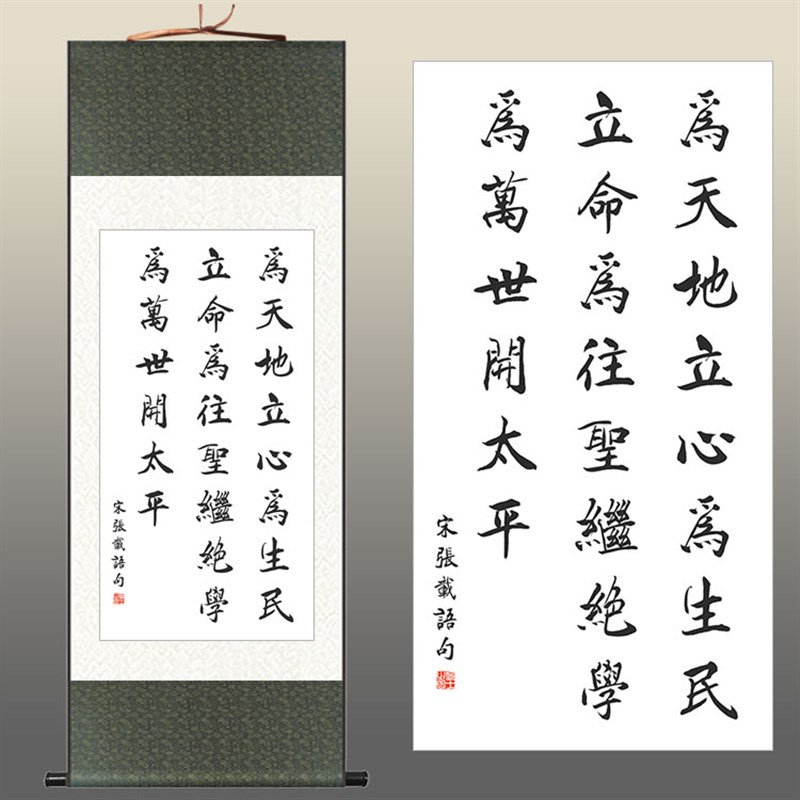 為天地立心為生民
立命為往聖繼絶學
為萬世開太平
宋張載語句
為天地立心為生民
立命為往聖繼絶學
為萬世開太平
宋張載語句